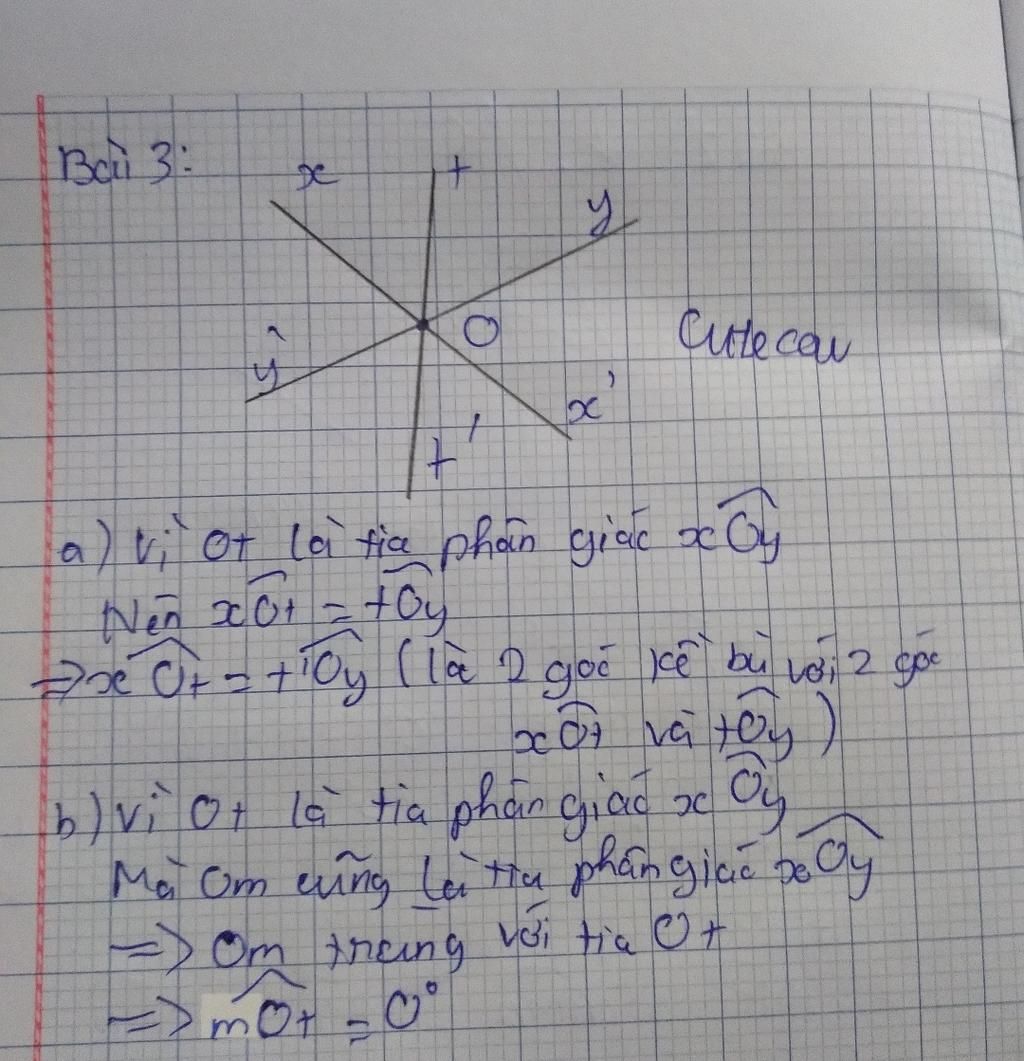 Bài 3:
x
t
y
O
y'
Cutecau
x'
t'
a) Vì Ot là tia phân giác xOy
Nên xOt = tOy
=> xOt = t'Oy (là 2 goć kề bù với 2 góc
xOt và tOy)
b) Vì Ot là tia phân giác xOy
Mà Om cũng là tia phân giác xOy
=> Om trùng với tia Ot
=> mOt = 0°